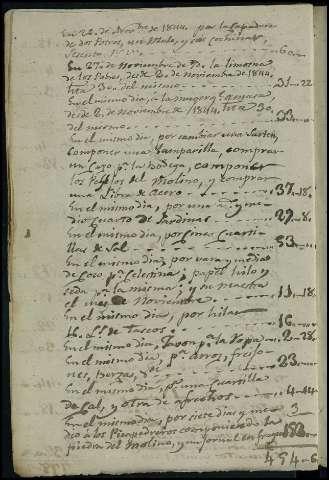 En 22 de Nov.bre de 1844, por la Capadura
de dos Potros, un Muleto, y seis cochinos,
En 27 de Noviembre de yd. la limosna
de los Pobres, desde 2 de Noviembre de 1844,
hta 30 del mismo 31-22
En el mismo dia, a la muger
desde 2 de Noviembre de 1844 hta 30
del mismo
En el mismo dia, por cambiar una Sarten,
componer una Lamparilla, comprar
un Cazo p.a la bodega, componer
los del Molino, y comprar
una Libra de Acero 37-18
En el mismo dia, por una @ y me-
dio cuarto de Sardinas 29-8
En el mismo dia, por cinco Cuarti-
llas de Sal 53
En el mismo dia, por vara y media
de Coco p.a Celestina, papel, hilo y
seda p.a la misma; y su maestra
el mes de Noviembre 11-18
En el mismo dia, por hilar
16. LL de Tascos 16
En el mismo dia, Javon p.a la Ropa 2-28
En el mismo dia, p.r Arroz, freso-
nes, Berzas, 23
En el mismo dia, p.r una Cuartilla
de Cal, y otra de afrechos 4-14
En el mismo dia, por siete dias y me-
dio a los Picapedreros componiendo la 3
piedra del Molino, y un jornal 132
494-6